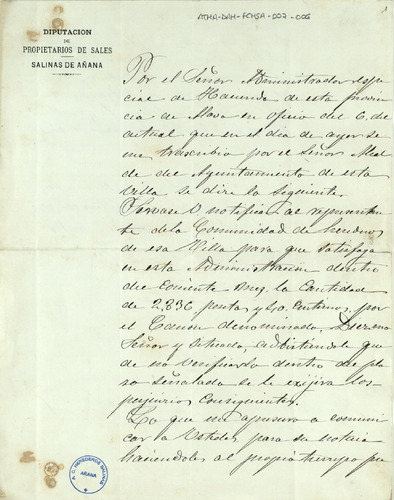 ATHA-DAH-FCHSA-007-006
DIPUTACION
DE
PROPIETARIOS DE SALES
SALINAS DE AÑANA
Por el Señor Administrador espe
cial de Hacienda de esta provin
cia de Alava en oficio del 6, de
actual que en el dia de ayer se
me trascribio por el Señor Alcal
de del Ayuntamiento de esta
Villa se dice lo siguiente.
Sirvase V notificar al represententan
te de la Comunidad de herederos
de esa Villa para que satisfaga
en esta Administracion dentro
del corriente mes, la Cantidad
de 2,836 pesetas y 50 Centimos, por
el Canon denominado, Diezmo
Señor y Situado, advirtiendole que
de no verificarlo dentro del pla
zo señalado se le exijira los
perjuicios Consiguientes.
Lo que me apresuro a comuni
car la Ustedes para su noticia
haciendoles al propio tiempo pre
A.C. HEREDEROS SALINAS
AÑANA